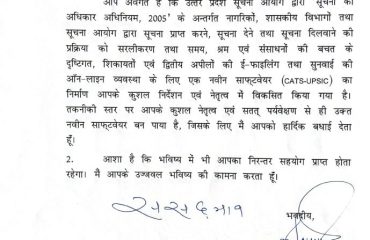 आप अवगत हैं कि उत्तर प्रदेश सूचना आयोग द्वारा 'सूचना का
अधिकार अधिनियम, 2005' के अन्तर्गत नागरिकों, शासकीय विभागों तथा
सूचना आयोग द्वारा सूचना प्राप्त करने, सूचना देने तथा सूचना दिलवाने की
प्रक्रिया को सरलीकरण तथा समय, श्रम एवं संसाधनों की बचत के
दृष्टिगत, शिकायतों एवं द्वितीय अपीलों की ई-फाइलिंग तथा सुनवाई की
ऑन-लाइन व्यवस्था के लिए एक नवीन साफ्टवेयर (CATS-UPSIC) का
निर्माण आपके कुशल निर्देशन एवं नेतृत्व में विकसित किया गया है।
तकनीकी स्तर पर आपके कुशल नेतृत्व एवं सतत् पर्यवेक्षण से ही उक्त
नवीन साफ्टवेयर बन पाया है, जिसके लिए मैं आपको हार्दिक बधाई देता
हूँ।
2. आशा है कि भविष्य में भी आपका निरन्तर सहयोग प्राप्त होता
रहेगा। मैं आपके उज्जवल भविष्य की कामना करता हूँ।
भवदीय,